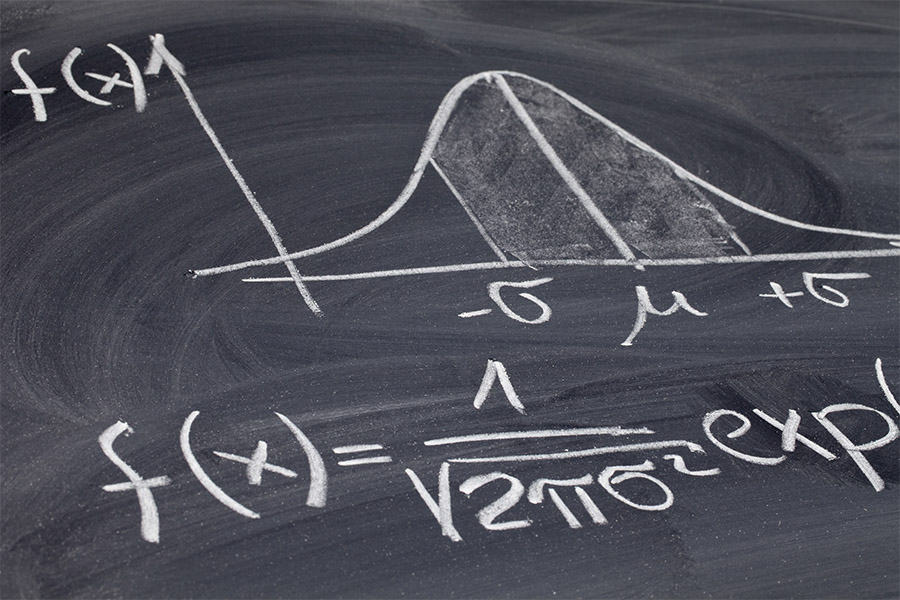 f(x)
-σ μ +σ
f(x) = 1/√2πσ² exp(